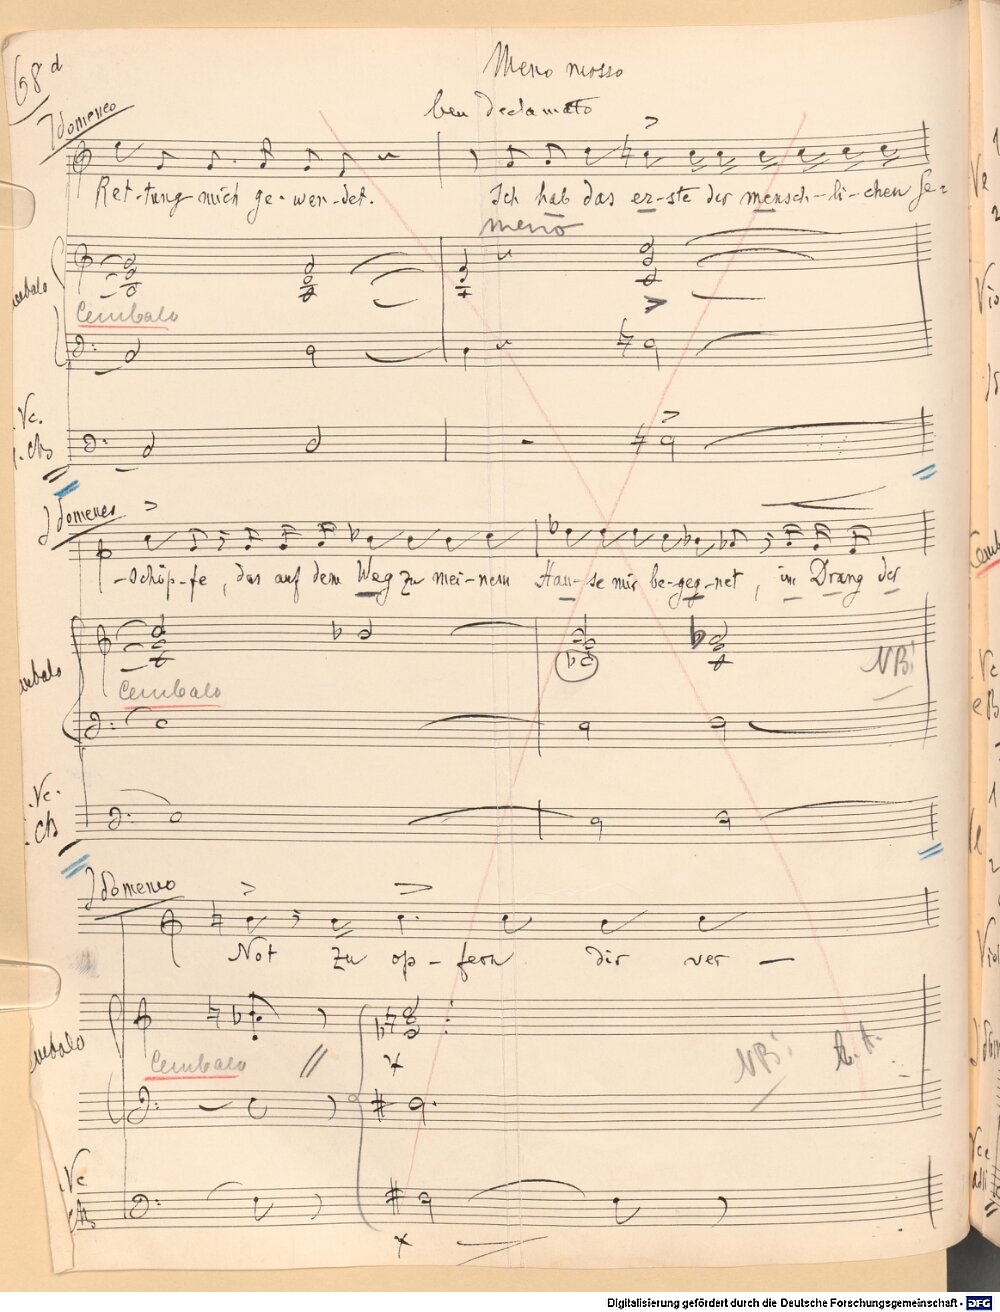 68d
Meno mosso
ben declamato
Idomeneo
Ret-tung mich ge-wen-det. Ich hab das er-ste der mensch-li-chen Ge-
meno
Cembalo
Vc.
Cb
Idomeneo
-schöp-fe, das auf dem Weg zu mei-nem Hau-se mir be-geg-net, im Drang der
NB!
Cembalo
Vc.
Cb
Idomeneo
Not zu op-fern dir ver-
Cembalo
NB!
Vc
Cb
Digitalisierung gefördert durch die Deutsche Forschungsgemeinschaft - DFG